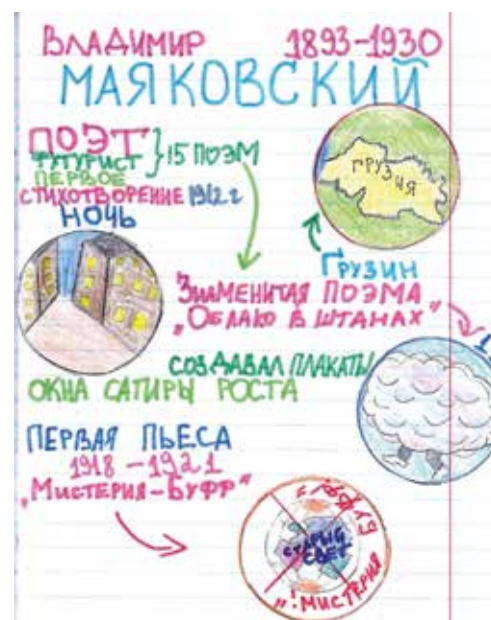 ВЛАДИМИР 1893-1930
МАЯКОВСКИЙ
ПОЭТ
ФУТУРИСТ } 15 ПОЭМ
ПЕРВОЕ
СТИХОТВОРЕНИЕ 1912 г
НОЧЬ
ГРУЗИЯ
ГРУЗИН
ЗНАМЕНИТАЯ ПОЭМА
„ОБЛАКО В ШТАНАХ"
СОЗДАВАЛ ПЛАКАТЫ
ОКНА САТИРЫ РОСТА
ПЕРВАЯ ПЬЕСА
1918 - 1921
„МИСТЕРИЯ-БУФФ"
СТАРЫЙ
СВЕТ
МИСТЕРИЯ